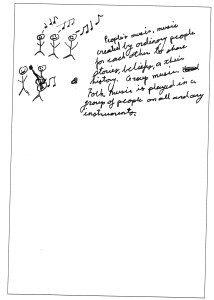 People's music, music
created by ordinary people
for each other to share
stories, beliefs, & their
history. Group music.
Folk music is played in a
group of people on all and any
instruments.